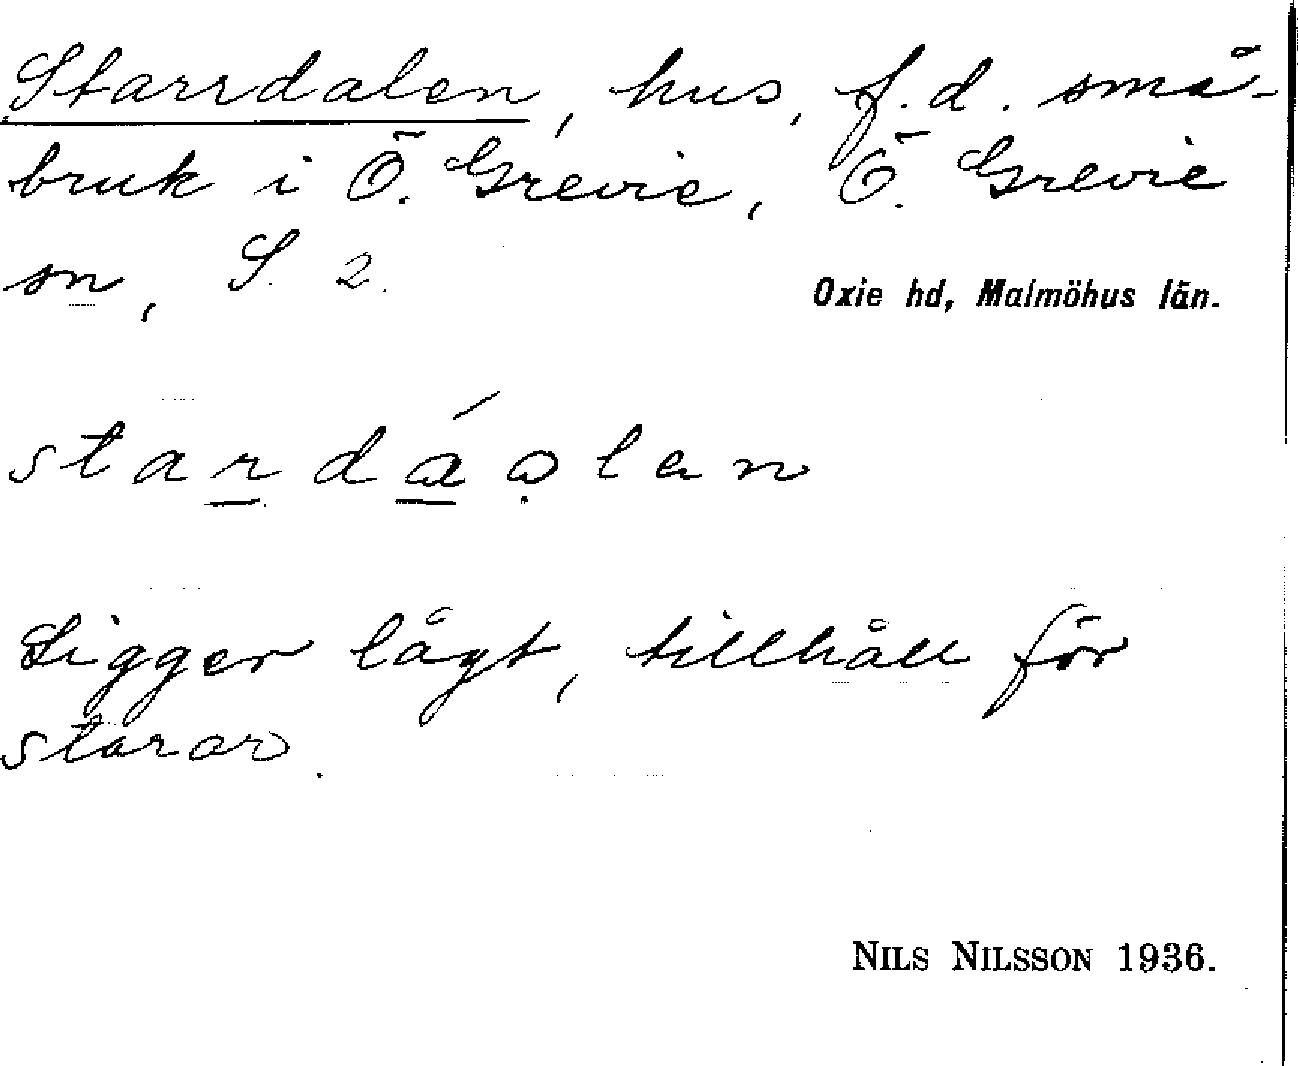 Starrdalen, hus, f.d. små-
bruk i Ö. Grevie, Ö. Grevie
sn, S. 2.
Oxie hd, Malmöhus län.
stardáalen
Ligger lågt, tillhåll för
starar.
NILS NILSSON 1936.